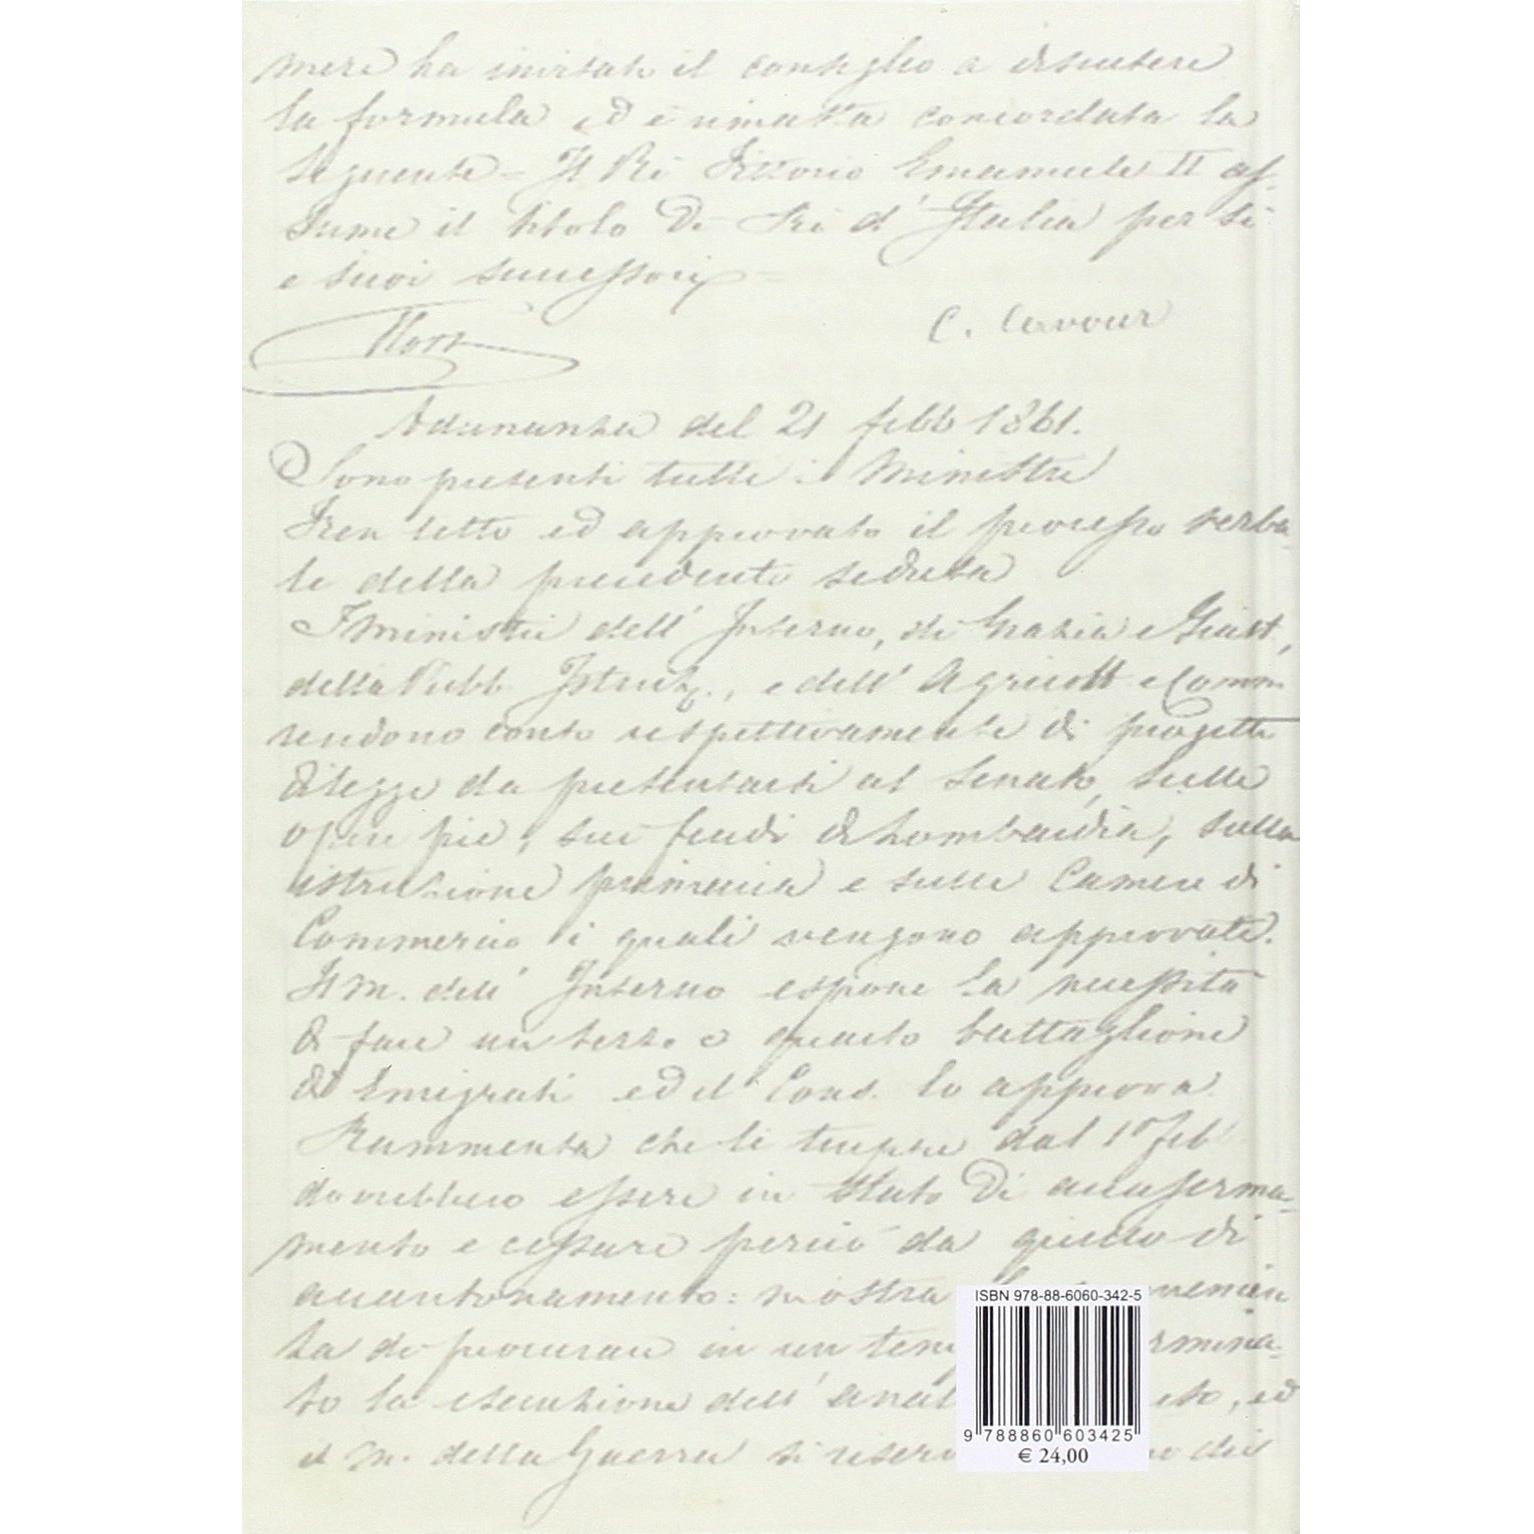 mere ha invitato il consiglio a discutere
la formula ed è rimasta concordata la
seguente = Il Re Vittorio Emanuele II as-
sume il titolo di Re d'Italia per sé
e suoi successori =
C. Cavour
Adunanza del 21 febb 1861.
Sono presenti tutti i Ministri
Vien letto ed approvato il processo verba-
le della precedente seduta
I Ministri dell'Interno, di Grazia e Giust,
della Pubb. Istruz., e dell'Agricolt e Comm
rendono conto rispettivamente di progetti
di legge da presentarsi al Senato, sulle
opere pie, sui feudi di Lombardia, sulla
istruzione primaria e sulle Camere di
Commercio i quali vengono approvati.
Il M. dell'Interno espone la necessità
di fare un terzo o quarto battaglione
di Emigrati ed il Cons. lo approva.
Rammenta che le truppe dal 1º feb
dovrebbero essere in stato di accaserma-
mento e cessare perciò da quello di
accantonamento: mostra la
za di procurare in un
to la esecuzione dell' ed
il M. della Guerra si
ISBN 978-88-6060-342-5
9 788860 603425
€ 24,00